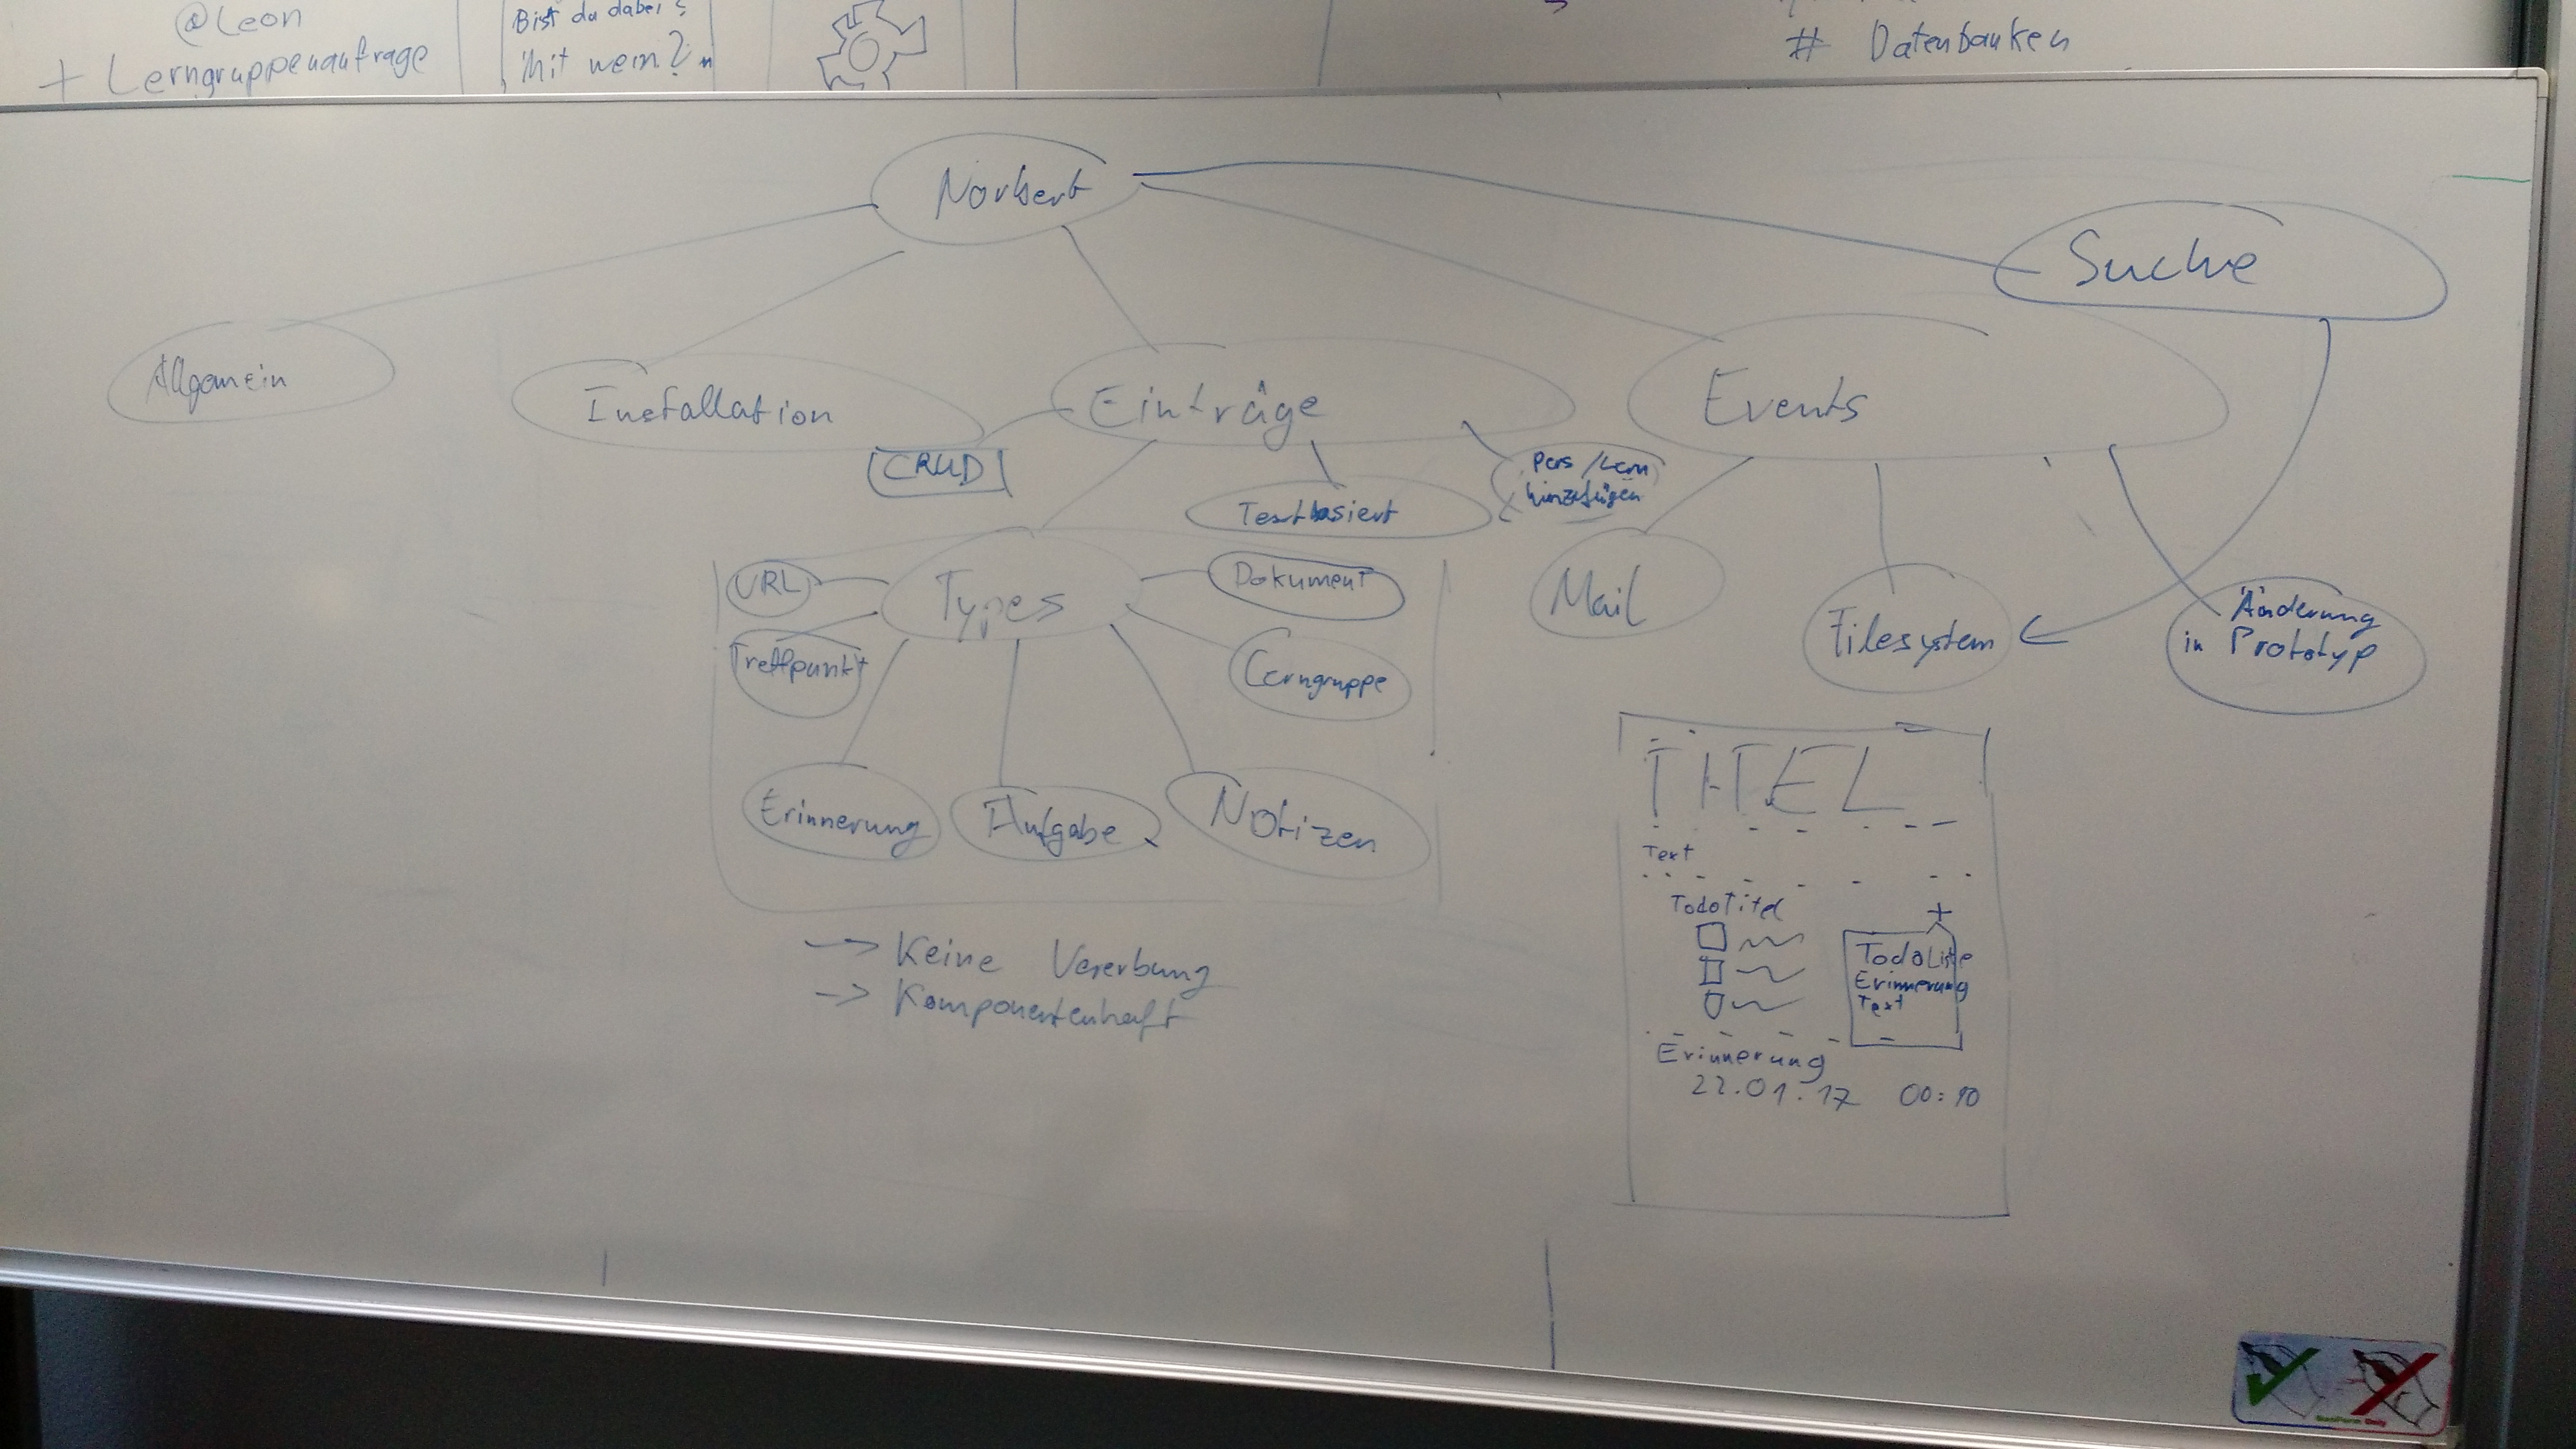 @Leon
+ Lerngruppenanfrage
Bist du dabei?
Mit wem?"
# Datenbanken
Norbert
Suche
Allgemein
Installation
Einträge
Events
CRUD
Textbasiert
Pers / Lern
hinzufügen
URL
Types
Dokument
Treffpunkt
Lerngruppe
Mail
Filesystem
Änderung
in Prototyp
Erinnerung
Aufgabe
Notizen
→ Keine Vererbung
→ Komponentenhaft
TITEL
Text
TodoTitel
+
TodoListe
Erinnerung
Text
Erinnerung
22.01.17 00:10